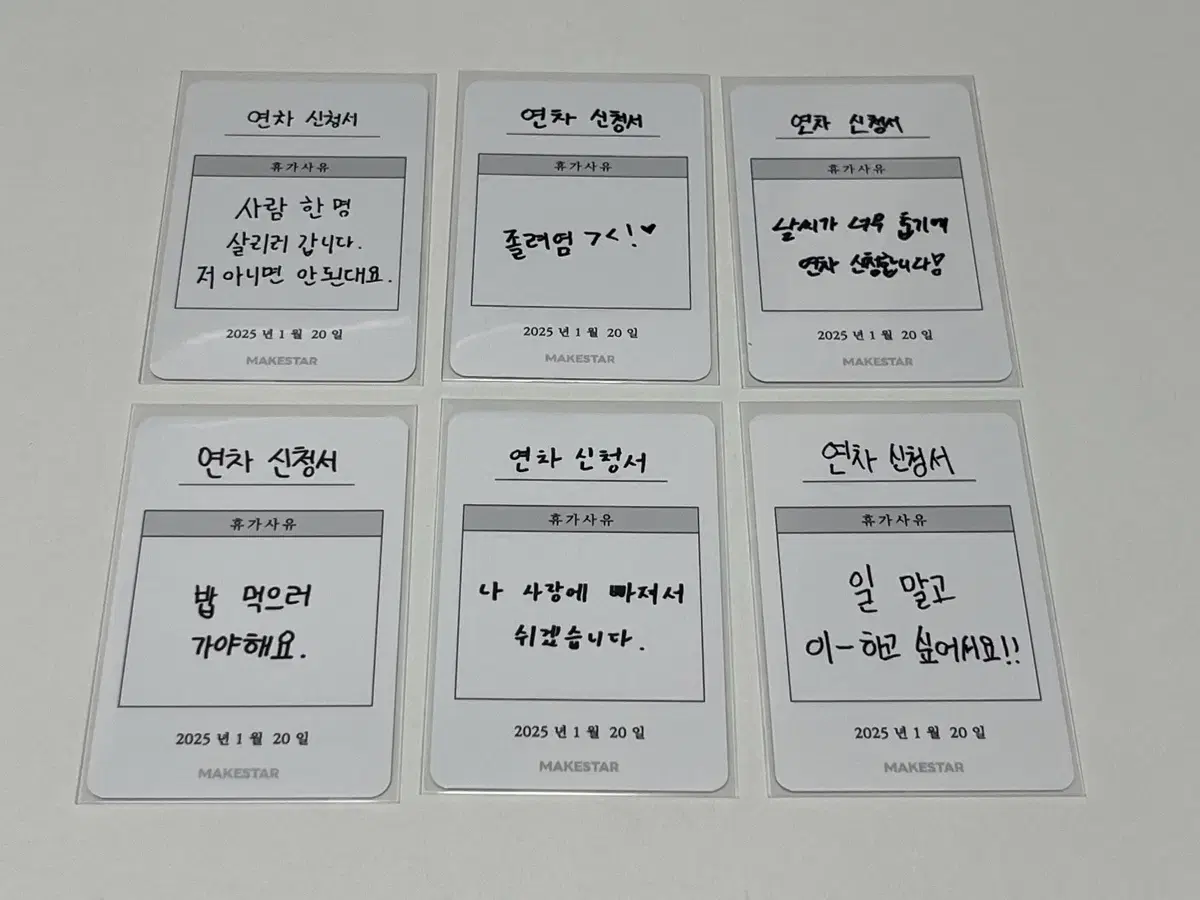 연차 신청서
휴가사유
사람 한 명
살리러 갑니다.
저 아니면 안된대요.
2025 년 1 월 20 일
MAKESTAR
연차 신청서
휴가사유
졸려염 ㄱㅅ!♥
2025 년 1 월 20 일
MAKESTAR
연차 신청서
휴가사유
날씨가 너무
연차 신청합니다
2025 년 1 월 20 일
MAKESTAR
연차 신청서
휴가사유
밥 먹으러
가야해요.
2025 년 1 월 20 일
MAKESTAR
연차 신청서
휴가사유
나 사랑에 빠져서
쉬겠습니다.
2025 년 1 월 20 일
MAKESTAR
연차 신청서
휴가사유
일 말고
이-하고 싶어서요!!
2025 년 1 월 20 일
MAKESTAR